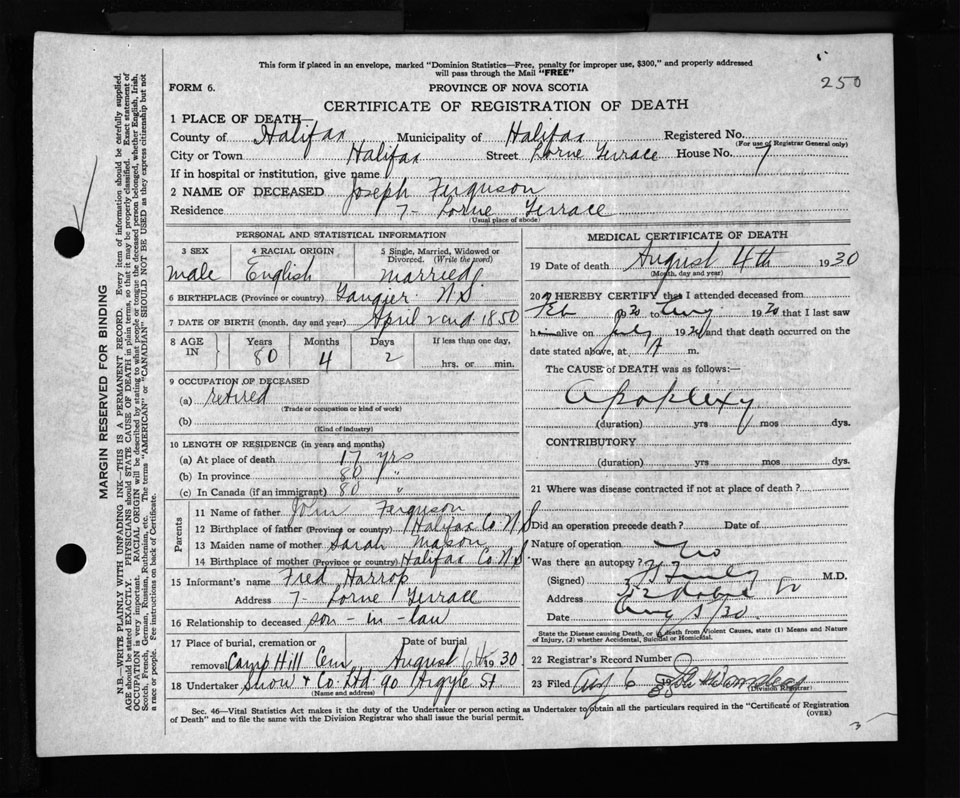 This form if placed in an envelope, marked "Dominion Statistics—Free, penalty for improper use, $300," and properly addressed
will pass through the Mail "FREE"
250
FORM 6.
PROVINCE OF NOVA SCOTIA
CERTIFICATE OF REGISTRATION OF DEATH
1 PLACE OF DEATH—
County of Halifax Municipality of Halifax Registered No.
(For use of Registrar General only)
City or Town Halifax Street Lorne Terrace House No. 7
If in hospital or institution, give name
2 NAME OF DECEASED Joseph Ferguson
Residence 7 - Lorne Terrace
(Usual place of abode)
PERSONAL AND STATISTICAL INFORMATION
3 SEX
male
4 RACIAL ORIGIN
English
5 Single, Married, Widowed or
Divorced. (Write the word)
married
6 BIRTHPLACE (Province or country) Tangier N S
7 DATE OF BIRTH (month, day and year) April 2nd 1850
8 AGE IN
Years Months Days If less than one day,
80 4 2 hrs. or min.
9 OCCUPATION OF DECEASED
(a) retired
(Trade or occupation or kind of work)
(b)
(Kind of industry)
10 LENGTH OF RESIDENCE (in years and months)
(a) At place of death 17 yrs
(b) In province 80 "
(c) In Canada (if an immigrant) 80 "
Parents
11 Name of father John Ferguson
12 Birthplace of father (Province or country) Halifax Co N S
13 Maiden name of mother Sarah Mason
14 Birthplace of mother (Province or country) Halifax Co N S
15 Informant's name Fred Harrop
Address 7 - Lorne Terrace
16 Relationship to deceased son - in - law
17 Place of burial, cremation or Date of burial
removal Camp Hill Cem August 6th 1930
18 Undertaker Snow & Co Ltd 90 Argyle St
(Name and address)
MEDICAL CERTIFICATE OF DEATH
19 Date of death August 4th 1930
(Month, day and year)
20 I HEREBY CERTIFY that I attended deceased from
Feb to Aug that I last saw
h alive on July and that death occurred on the
date stated above, at m.
The CAUSE of DEATH was as follows:—
Apoplexy
(duration) yrs mos dys.
CONTRIBUTORY
(duration) yrs mos dys.
21 Where was disease contracted if not at place of death?
Did an operation precede death? Date of
Nature of operation
Was there an autopsy? No
(Signed) M.D.
Address
Date Aug 5/30
State the Disease causing Death, or if death from Violent Causes, state (1) Means and Nature
of Injury, (2) whether Accidental, Suicidal or Homicidal.
22 Registrar's Record Number
23 Filed Aug 6
(Division Registrar)
Sec. 46—Vital Statistics Act makes it duty of the Undertaker or person acting as Undertaker to obtain all the particulars required in the "Certificate of Registration
of Death" and to file the same with the Division Registrar who shall issue the burial permit.
(OVER)
3
MARGIN RESERVED FOR BINDING
N.B.—WRITE PLAINLY WITH UNFADING INK—THIS IS A PERMANENT RECORD. Every item of information should be carefully supplied.
AGE should be stated EXACTLY. PHYSICIANS should STATE CAUSE OF DEATH in plain terms, so that it may be properly classified. Exact statement of
OCCUPATION is very important. RACIAL ORIGIN will be described by stating to what people or tongue the deceased person belonged, whether English, Irish,
Scotch, French, German, Russian, Ruthenian, etc. The terms "AMERICAN" or "CANADIAN" SHOULD NOT BE USED as they express citizenship but not
a race or people. See instructions on back of Certificate.